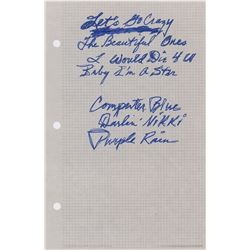 Let's Go Crazy
The Beautiful Ones
I Would Die 4 U
Baby I'm A Star
Computer Blue
Darlin' Nikki
Purple Rain